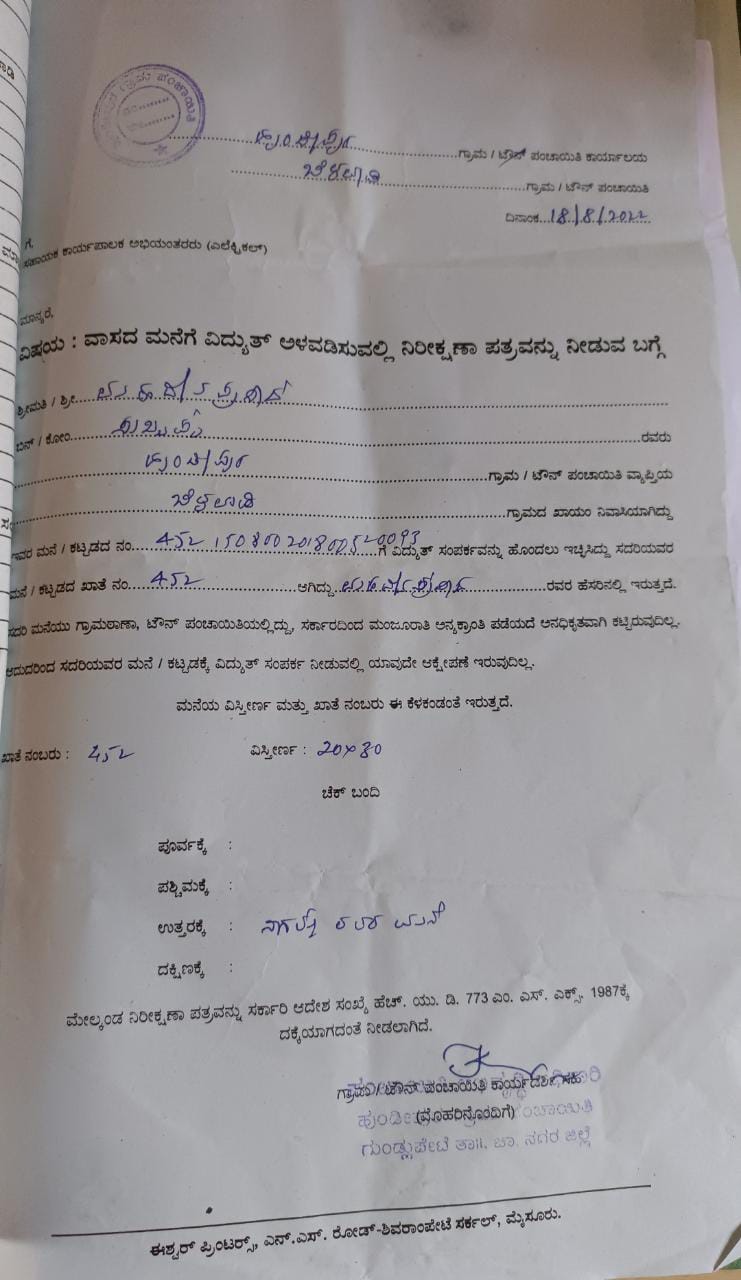 ಗ್ರಾಮ ಪಂಚಾಯಿತಿ
ಹುಂಡೀಪುರ ಗ್ರಾಮ / ಟೌನ್ ಪಂಚಾಯಿತಿ ಕಾರ್ಯಾಲಯ
ಗ್ರಾಮ / ಟೌನ್ ಪಂಚಾಯಿತಿ
ದಿನಾಂಕ...18/8/2022
ಗೆ,
ಸಹಾಯಕ ಕಾರ್ಯಪಾಲಕ ಅಭಿಯಂತರರು (ಎಲೆಕ್ಟ್ರಿಕಲ್)
ಮಾನ್ಯರೆ,
ವಿಷಯ : ವಾಸದ ಮನೆಗೆ ವಿದ್ಯುತ್ ಅಳವಡಿಸುವಲ್ಲಿ ನಿರೀಕ್ಷಣಾ ಪತ್ರವನ್ನು ನೀಡುವ ಬಗ್ಗೆ
ಶ್ರೀಮತಿ / ಶ್ರೀ
ಬಿನ್ / ಕೋಂ ರವರು
ಹುಂಡೀಪುರ ಗ್ರಾಮ / ಟೌನ್ ಪಂಚಾಯಿತಿ ವ್ಯಾಪ್ತಿಯ
ಗ್ರಾಮದ ಖಾಯಂ ನಿವಾಸಿಯಾಗಿದ್ದು
ಇವರ ಮನೆ / ಕಟ್ಟಡದ ನಂ. 452 150800201800520093 ಗೆ ವಿದ್ಯುತ್ ಸಂಪರ್ಕವನ್ನು ಹೊಂದಲು ಇಚ್ಛಿಸಿದ್ದು ಸದರಿಯವರ
ಮನೆ / ಕಟ್ಟಡದ ಖಾತೆ ನಂ. 452 ಆಗಿದ್ದು ರವರ ಹೆಸರಿನಲ್ಲಿ ಇರುತ್ತದೆ.
ಸದರಿ ಮನೆಯು ಗ್ರಾಮಠಾಣಾ, ಟೌನ್ ಪಂಚಾಯಿತಿಯಲ್ಲಿದ್ದು, ಸರ್ಕಾರದಿಂದ ಮಂಜೂರಾತಿ ಅನ್ಯಕ್ರಾಂತಿ ಪಡೆಯದೆ ಅನಧಿಕೃತವಾಗಿ ಕಟ್ಟಿರುವುದಿಲ್ಲ.
ಆದುದರಿಂದ ಸದರಿಯವರ ಮನೆ / ಕಟ್ಟಡಕ್ಕೆ ವಿದ್ಯುತ್ ಸಂಪರ್ಕ ನೀಡುವಲ್ಲಿ ಯಾವುದೇ ಆಕ್ಷೇಪಣೆ ಇರುವುದಿಲ್ಲ.
ಮನೆಯ ವಿಸ್ತೀರ್ಣ ಮತ್ತು ಖಾತೆ ನಂಬರು ಈ ಕೆಳಕಂಡಂತೆ ಇರುತ್ತದೆ.
ಖಾತೆ ನಂಬರು : 452 ವಿಸ್ತೀರ್ಣ : 20×30
ಚೆಕ್ ಬಂದಿ
ಪೂರ್ವಕ್ಕೆ :
ಪಶ್ಚಿಮಕ್ಕೆ :
ಉತ್ತರಕ್ಕೆ : ರವರ ಮನೆ
ದಕ್ಷಿಣಕ್ಕೆ :
ಮೇಲ್ಕಂಡ ನಿರೀಕ್ಷಣಾ ಪತ್ರವನ್ನು ಸರ್ಕಾರಿ ಆದೇಶ ಸಂಖ್ಯೆ ಹೆಚ್. ಯು. ಡಿ. 773 ಎಂ. ಎಸ್. ಎಕ್ಸ್. 1987ಕ್ಕೆ
ದಕ್ಕೆಯಾಗದಂತೆ ನೀಡಲಾಗಿದೆ.
ಗ್ರಾಮ / ಟೌನ್ ಪಂಚಾಯಿತಿ ಕಾರ್ಯದರ್ಶಿ ಸಹಿ
(ಮೊಹರಿನೊಂದಿಗೆ)
ಗುಂಡ್ಲುಪೇಟೆ ತಾ॥. ಚಾ. ನಗರ ಜಿಲ್ಲೆ
ಈಶ್ವರ್ ಪ್ರಿಂಟರ್ಸ್, ಎನ್.ಎಸ್. ರೋಡ್-ಶಿವರಾಂಪೇಟೆ ಸರ್ಕಲ್, ಮೈಸೂರು.